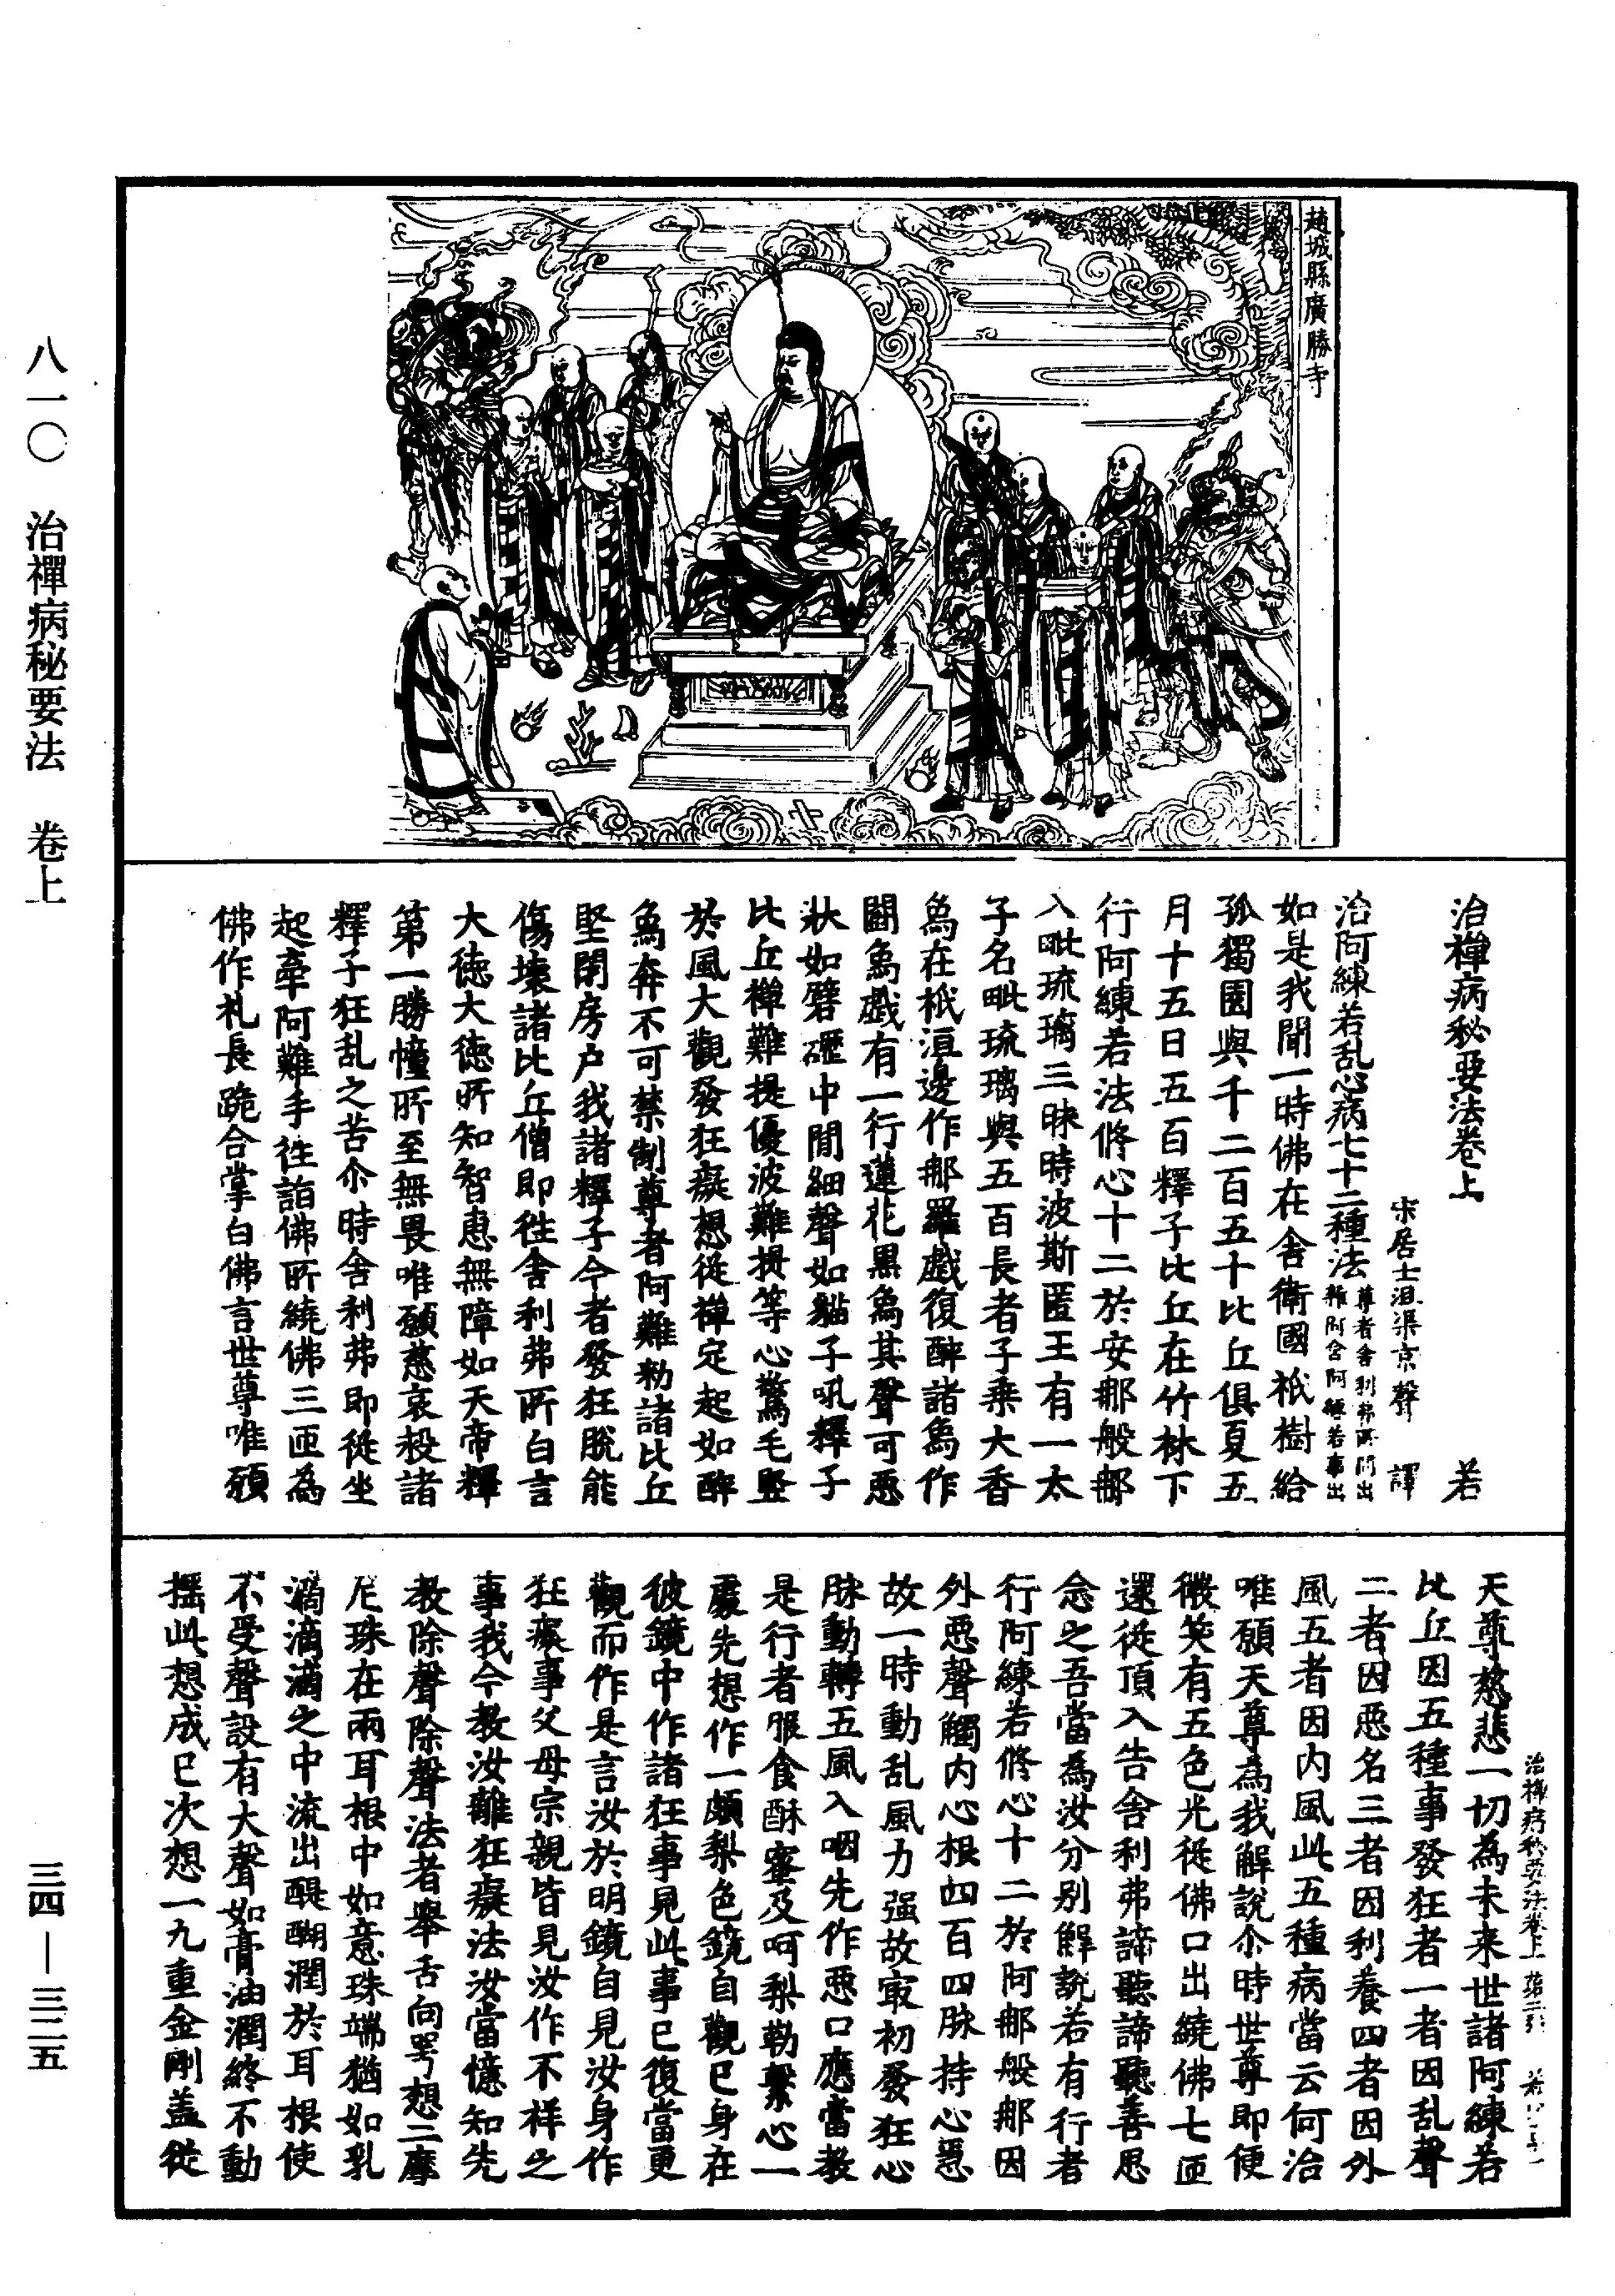 趙城縣廣勝寺
治禪病秘要法卷上　若
宋居士沮渠京聲　譯
治阿練若乱心病七十二種法尊者舍利弗所問出
雜阿含阿練若事出
如是我聞一時佛在舍衛國祇樹給
孤獨園與千二百五十比丘俱夏五
月十五日五百釋子比丘在竹林下
行阿練若法修心十二於安那般那
入毗琉璃三昧時波斯匿王有一太
子名毗琉璃與五百長者子乘大香
象在祇洹邊作那羅戲復醉諸象作
鬪象戲有一行蓮花黒象其聲可惡
狀如礔礰中間細聲如貓子吼釋子
比丘禪難提優波難提等心驚毛竪
於風大觀發狂癡想從禪定起如醉
象奔不可禁制尊者阿難勑諸比丘
堅閉房户我諸釋子今者發狂脱能
傷壞諸比丘僧即徃舍利弗所白言
大徳大徳所知智恵無障如天帝釋
第一勝幢所至無畏唯願慈哀救諸
釋子狂乱之苦尒時舍利弗即從坐
起牽阿難手徃詣佛所繞佛三匝為
佛作礼長跪合掌白佛言世尊唯願
治禪病秘要法卷上　第二張　若
天尊慈悲一切為未來世諸阿練若
比丘因五種事發狂者一者因乱聲
二者因惡名三者因利養四者因外
風五者因内風此五種病當云何治
唯願天尊為我解說尒時世尊即便
微笑有五色光從佛口出繞佛七匝
還從頂入告舍利弗諦聽諦聽善思
念之吾當為汝分别解說若有行者
行阿練若修心十二於阿那般那因
外惡聲觸内心根四百四脉持心急
故一時動乱風力强故冣初發狂心
脉動轉五風入咽先作惡口應當教
是行者服食酥蜜及呵梨勒繫心一
處先想作一頗梨色鏡自觀已身在
彼鏡中作諸狂事見此事已復當更
觀而作是言汝於明鏡自見汝身作
狂癡事父母宗親皆見汝作不祥之
事我今教汝離狂癡法汝當憶知先
教除聲除聲法者舉舌向咢想二摩
尼珠在兩耳根中如意珠端猶如乳
滴滴滴之中流出醍醐潤於耳根使
不受聲設有大聲如膏油潤終不動
揺此想成已次想一九重金剛盖從
八一〇　治禪病秘要法　卷上
三四—三二五